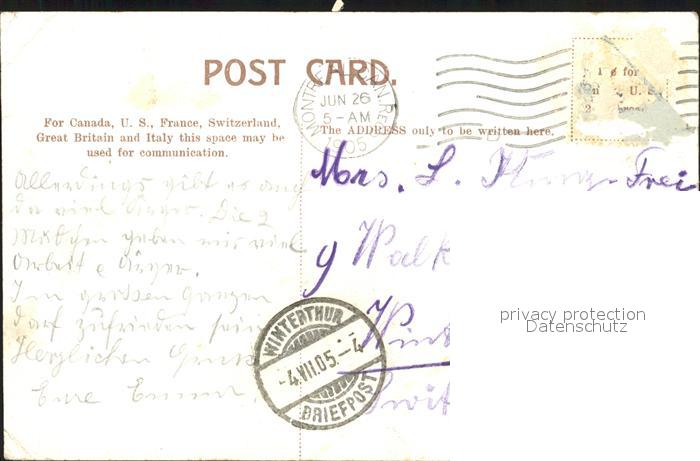 POST CARD.
MONTREAL, CAN.
JUN 26
5-AM
1905
1 ¢ for
U. S.
2
For Canada, U. S., France, Switzerland,
Great Britain and Italy this space may be
used for communication.
The ADDRESS only to be written here.
Allerdings gibt es auch
da viel Ärger. Die 2
Mädchen geben mir viel
Arbeit & Ärger.
Im grossen Ganzen
darf zufrieden sein
Herzlichen Gruss
Eure Emma.
Mrs. L. Frei
9 Walk
Wint
Swit
WINTERTHUR
-4.VII.05.-4
BRIEFPOST
privacy protection
Datenschutz